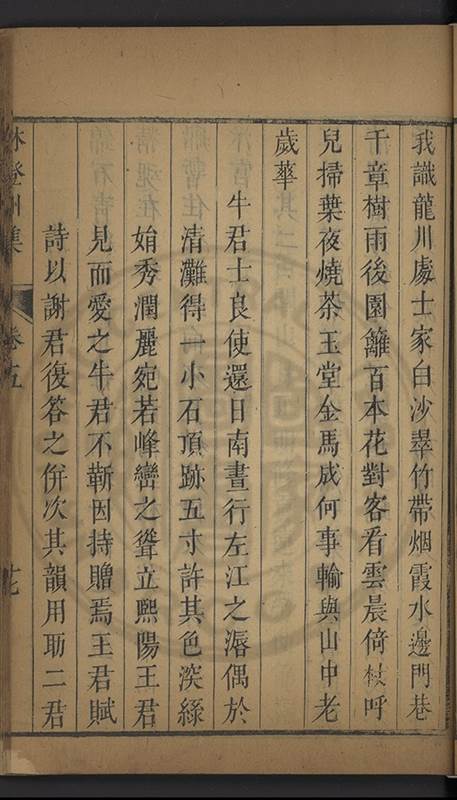 我識龍川處士家白沙翠竹帶烟霞水邊門巷
千章樹雨後園籬百本花對客看雲晨倚杖呼
兒掃葉夜燒茶玉堂金馬成何事輸與山中老
歲華
牛君士良使還日南晝行左江之滣偶於
清灘得一小石頂跡五寸許其色深綠
姷秀潤麗宛若峰巒之聳立熙陽王君
見而愛之牛君不靳因持贈焉王君賦
詩以謝君復答之併次其韻用勗二君
林登州集
卷五